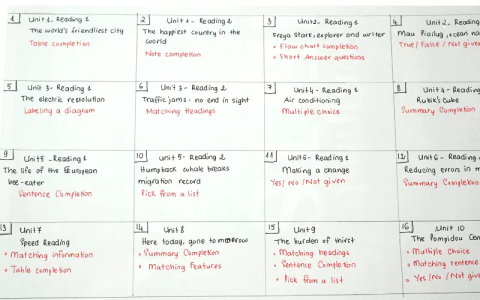 1 Unit 1 - Reading 1
The world's friendliest city
Table completion
2 Unit 1 - Reading 2
The happiest country in the
world
Note completion
3 Unit2 - Reading 1
Freya Stark, explorer and writer
• Flow chart completion
• Short Answer questions
4 Unit 2 - Reading
Mau Piailug, ocean na
True / False / Not given
5 Unit 3 - Reading 1
The electric revolution
Labeling a diagram
6 Unit 3 - Reading 2
Traffic jams - no end in sight
Matching Headings
7 Unit 4 - Reading 1
Air conditioning
Multiple choice
8 Unit 4 - Reading
Rubik's cube
Summary Completion
9 Unit5 - Reading 1
The life of the European
bee-eater
Sentence Completion
10 Unit 5 - Reading 2
Humpback whale breaks
migration record
Pick from a list
11 Unit 6 - Reading 1
Making a change
Yes / No / Not given
12 Unit 6 - Reading
Reducing errors in m
Summary Completion
13 Unit 7
Speed Reading
• Matching information
• Table completion
14 Unit 8
Here today, gone tomorrow
• Summary Completion
• Matching Features
15 Unit 9
The burden of thirst
• Matching headings
• Sentence Completion
• Pick from a list
16 Unit 10
The Pompidou Cen
• Multiple Choice
• Matching sentence
• Yes / No / Not give